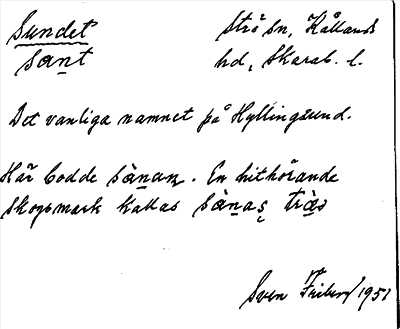 Sundet Strö sn, Kållands
sant hd, Skarab. l.
Det vanliga namnet på Hyllingsund.
Här bodde sànan. En hithörande
skogsmark kallas sànas
Sven 1951